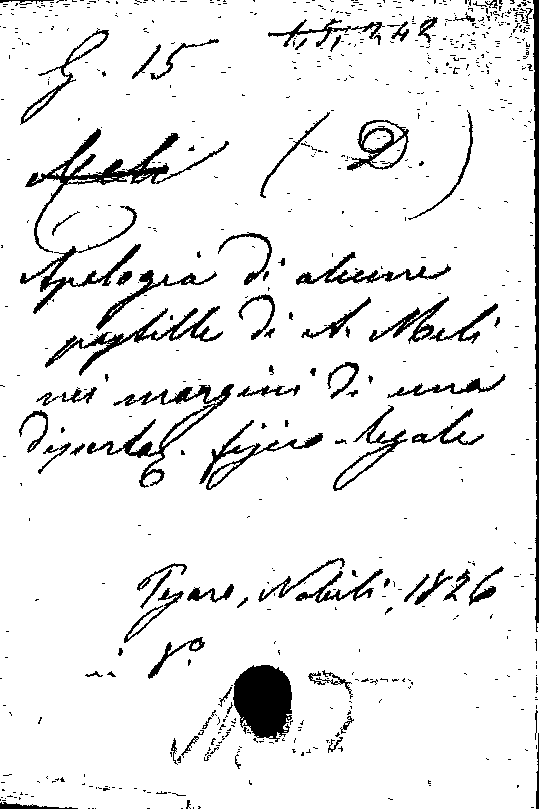 G. 15 1, 5, 242
Meli (D.)
Apologia di alcune
postille di A. Meli
nei margini di una
dissertaz. fisico-legale
Pesaro, Nobili, 1826
in 8.°